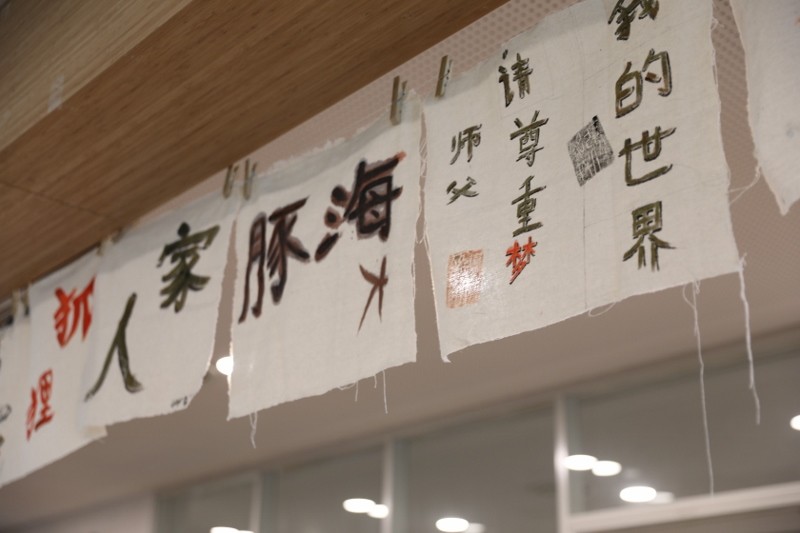 我的世界
请尊重梦
师父
海豚
家人
狐狸